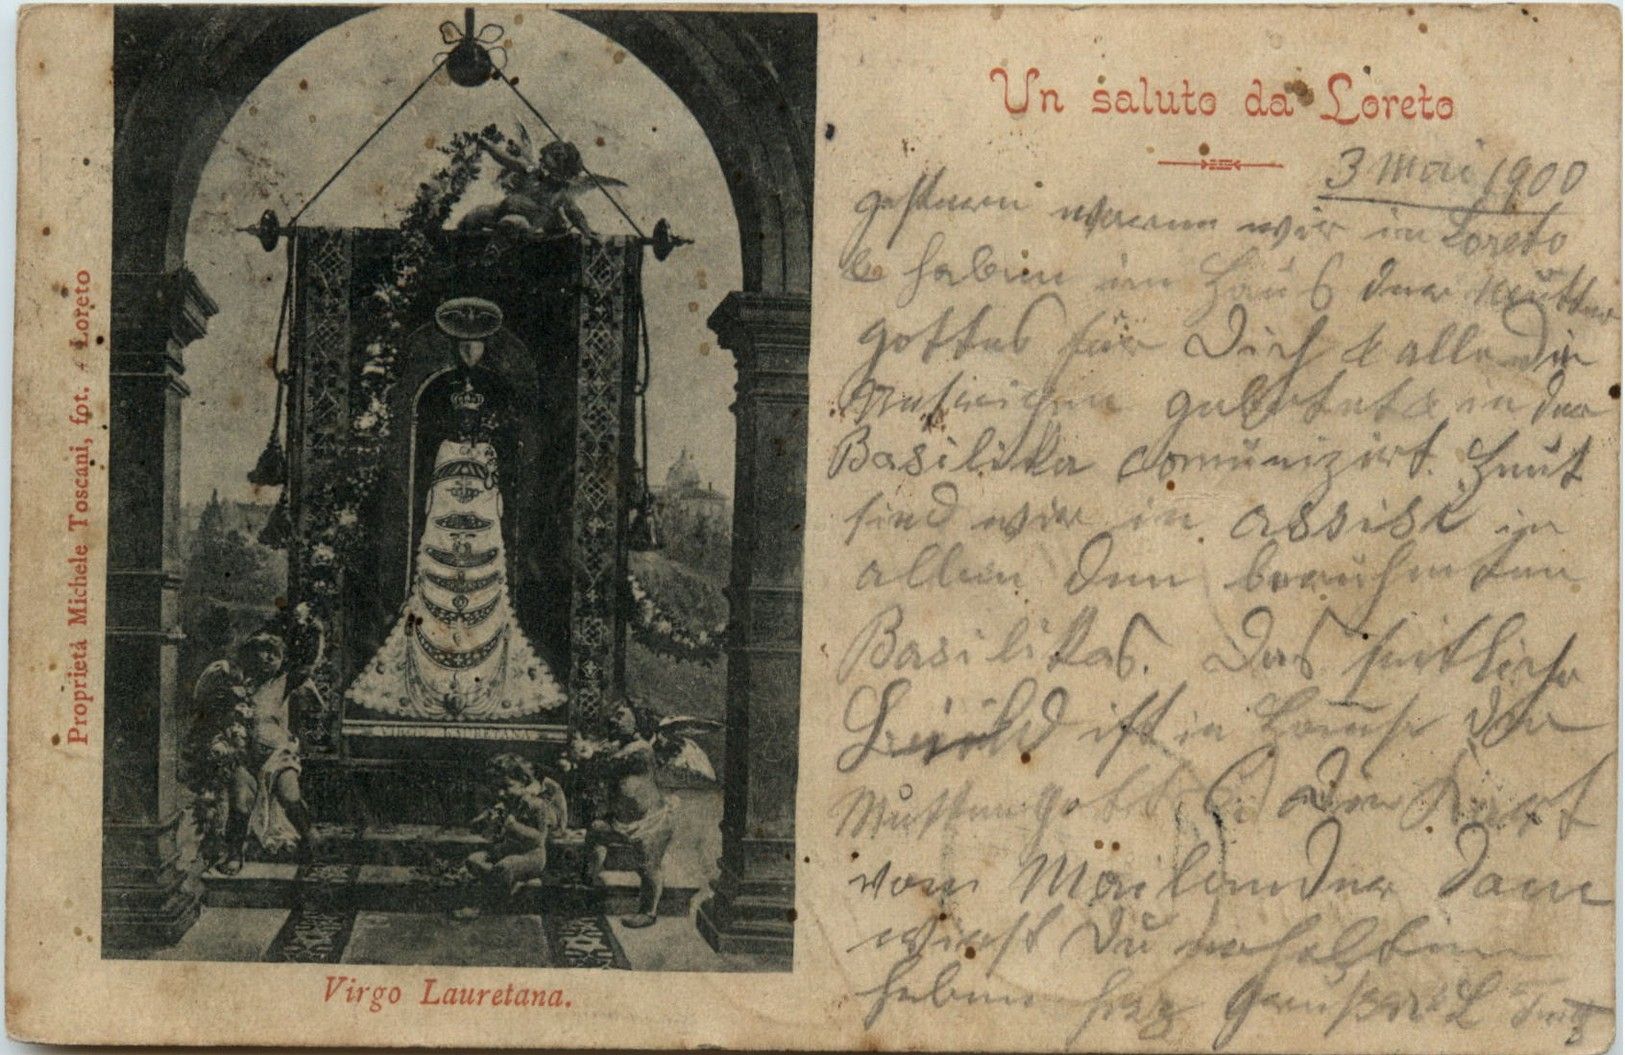 Proprietà Michele Toscani, fot. - Loreto
VIRGO LAURETANA
Virgo Lauretana.
Un saluto da Loreto
3 Mai 1900
gestern waren wir in Loreto
& haben im Haus der Mutter
gottes für Dich & alle die
gebetet & in der
Basilika comünizirt. Heut
sind wir in Assisi in
allen den berühmten
Basilikas. Das seitliche
Bild ist im Hause der
Mutter Gottes. Die Kart
vom Mailander Dom
wirst Du erhalten
haben herz Grüße